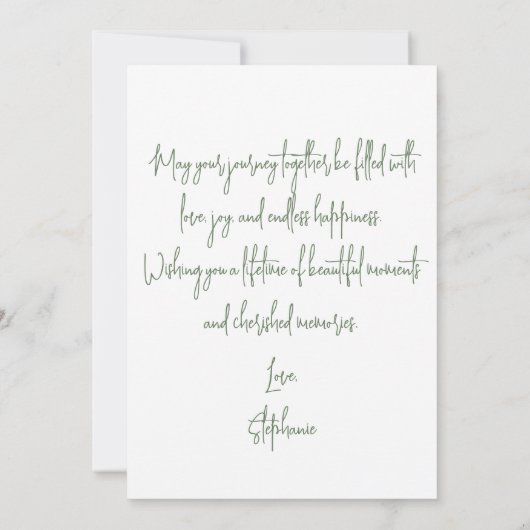 May your journey together be filled with
love, joy, and endless happiness.
Wishing you a lifetime of beautiful moments
and cherished memories.
Love,
Stephanie